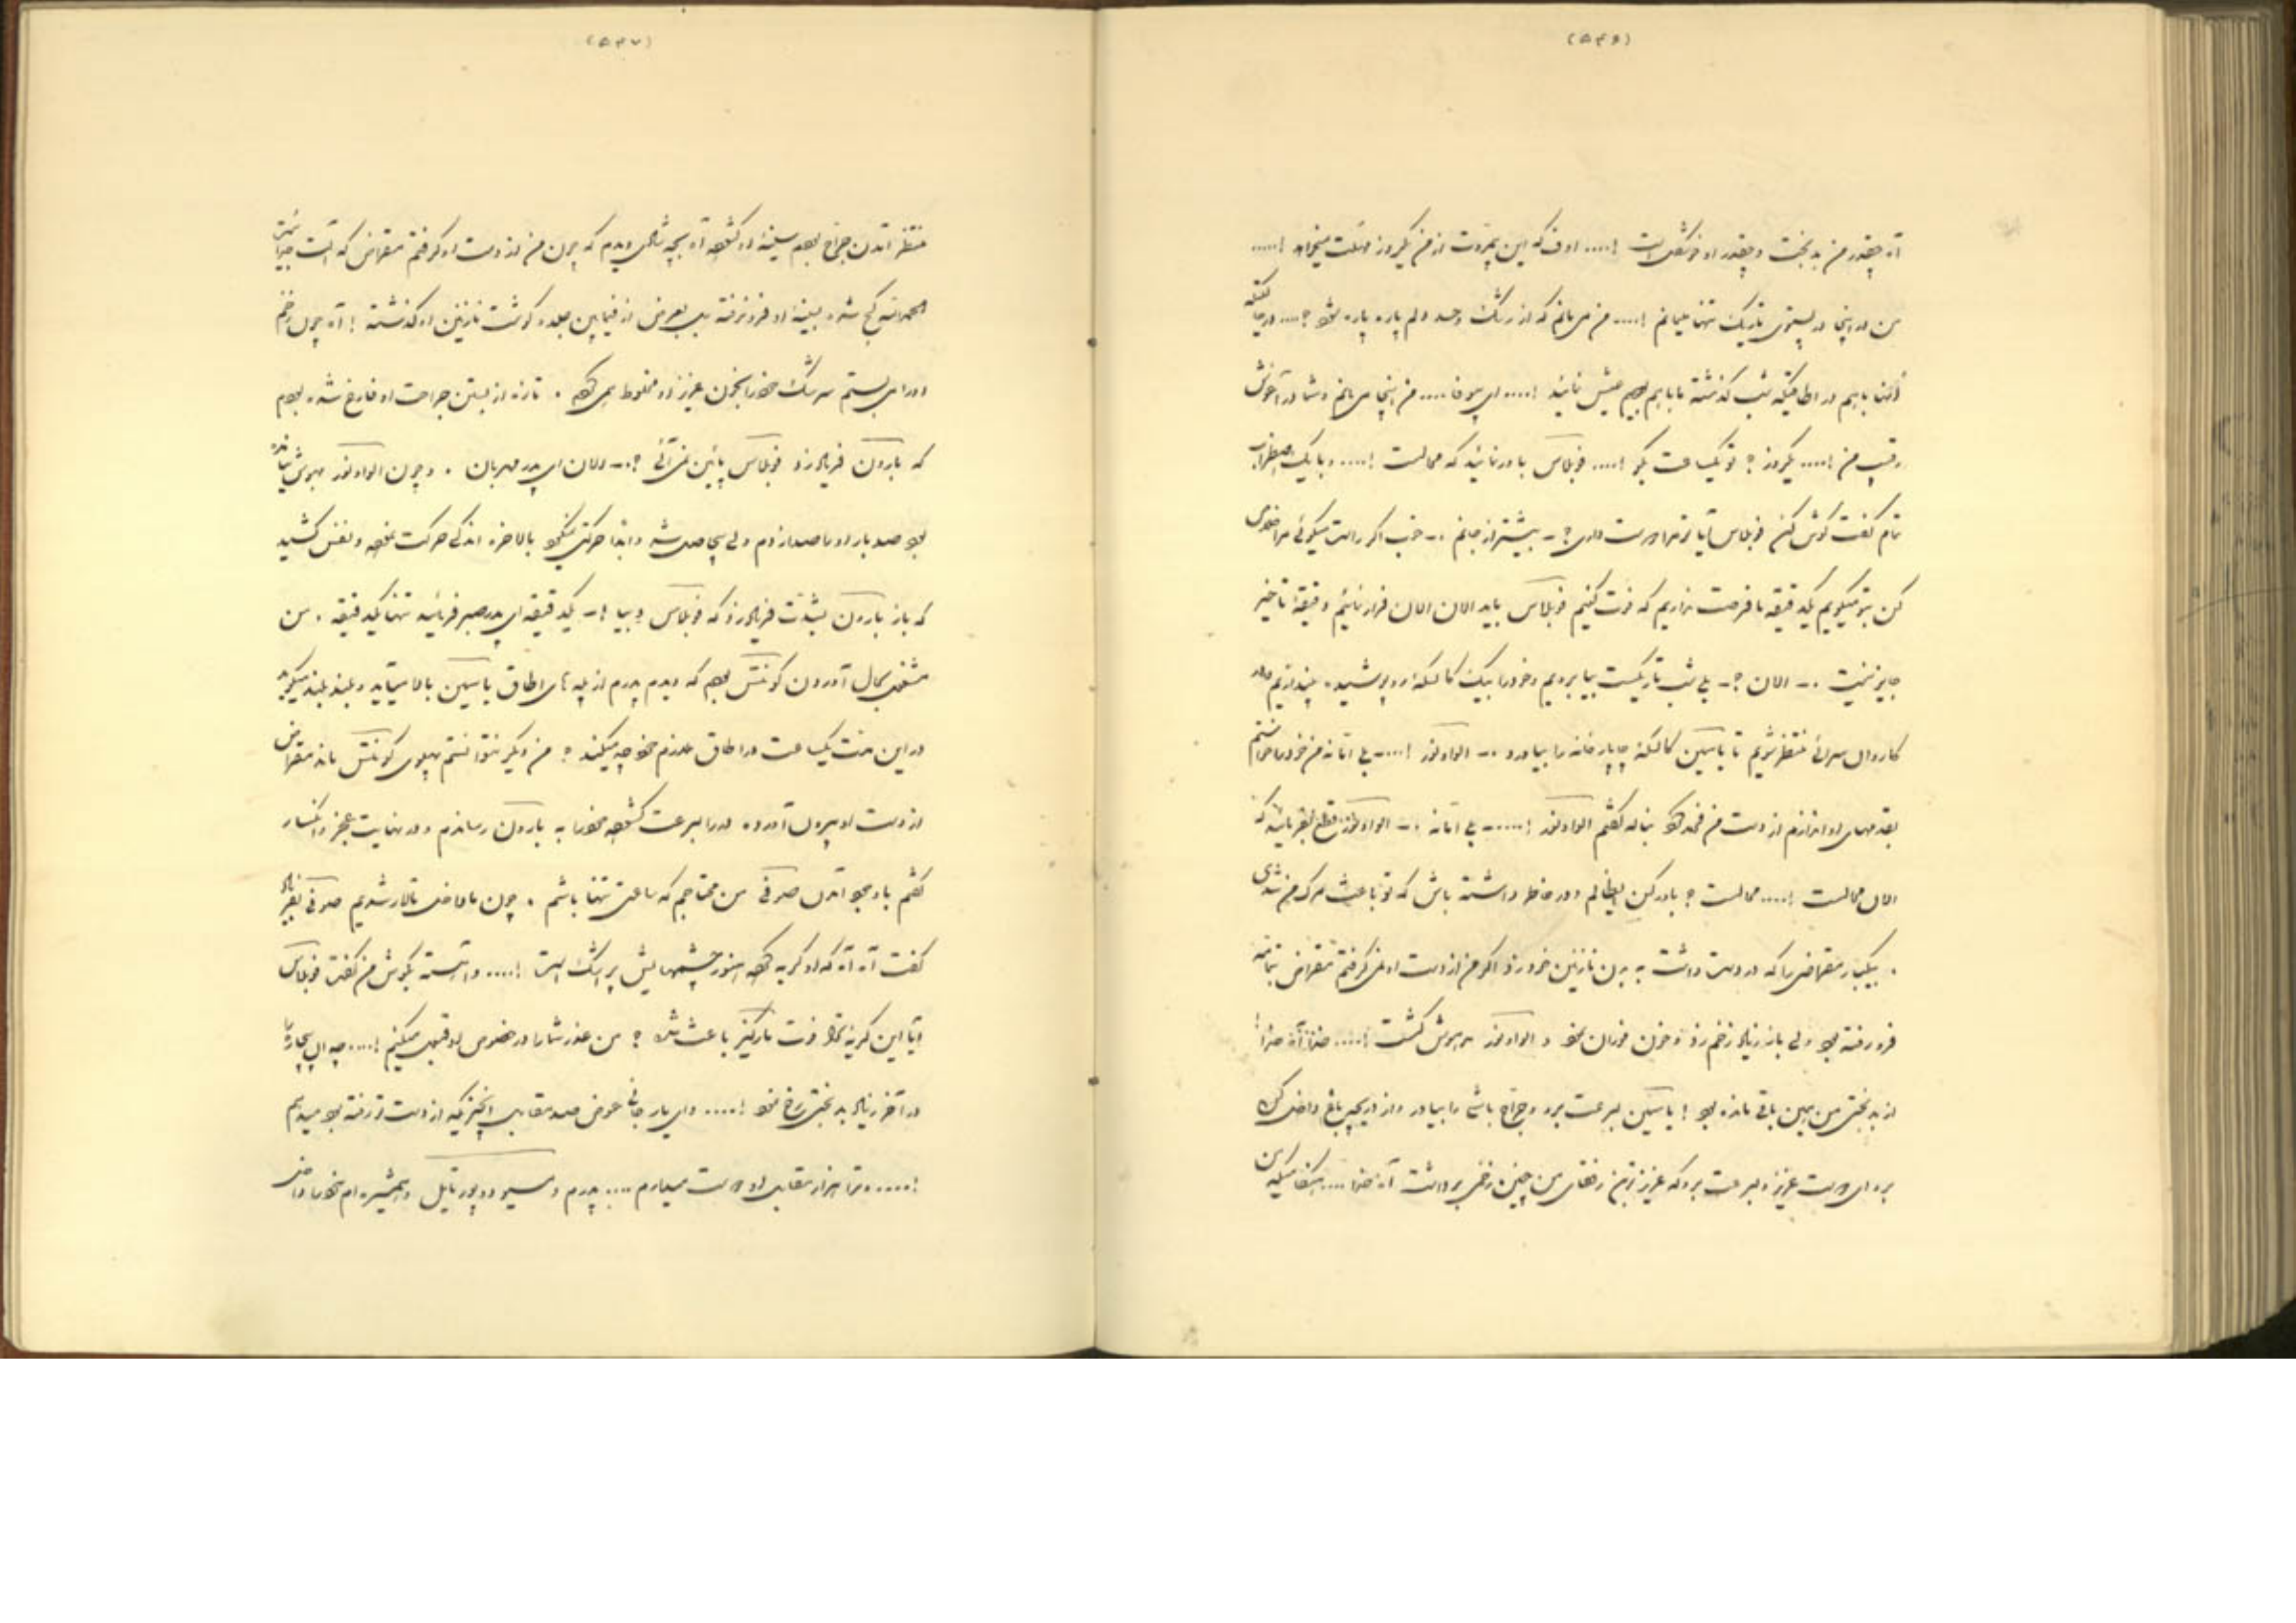 (۵۴۶)
آه چقدر من بدبخت و چقدر او خوشبخت است !.... اوف که این بیمروّت از من یکروز مهلت میخواهد !....
من در اینجا در پستوی تاریک تنها بمانم !.... من می مانم که از رشک و حسد دلم پاره پاره شود ؟....
باهم در اطاقیکه شب گذشته ما باهم بودیم عیش نمایند !.... من اینجا می مانم و شما در آغوش
رقیب من !.... یکروز ؟ تو یکساعت بگو !.... فوبلاس باور نمائید که محالست !.... و با یک اضطراب
تمام گفت گوش کن فوبلاس آیا تو مرا دوست داری ؟ - بیشتر از جانم .- خوب اگر راست میگوئی
کن بتو میگویم یکدقیقه ما فرصت نداریم که فوت کنیم فوبلاس باید الان الان فرار نمائیم دقیقهٔ تأخیر
جایز نیست .- الان ؟- بلی شب تاریکست بیا برویم و خود را بیک کالسکهٔ
کاروان سرائی منتظر شویم تا یاسمین کالسکهٔ چاپارخانه را بیاورد .- الوادونور !....- من خود را خواستم
بقدمهای او اندازم از دست من بناله گفتم الوادونور !....
الان محالست !.... محالست ؟ باور کن ای ظالم و در خاطر داشته باش که تو باعث مرگ من شدی
. بیکبار مقراضی را که در دست داشت به بدن نازنین خود زد اگر من از دست او نمی گرفتم مقراض بتمامه
فرو رفته بود ولی باز زیاد زخم زد و خون فوران نمود و الوادونور بیهوش گشت !.... خدا آه خدا !
از بدبختی من همین باقی مانده بود ! یاسمین بسرعت برو و جرّاح باشی را بیاور و از دریچهٔ باغ داخل کن
برو ای دوست عزیز و بسرعت برو که عزیزترین رفقای من چنین زخمی برداشت آه خدا ....
(۵۴۷)
منتظر آمدن جرّاح بودم سینهٔ او گشوده آه بچه حالی دیدم که چون من از دست او گرفتم مقراض
الحمدلله کج شده بسینهٔ او فرو نرفته بل بعرض از فیمابین جلد و گوشت نازنین او گذشته ! آه چون زخم
او را می بستم سرشک خود را بخون عزیز او مخلوط می کردم . تازه از بستن جراحت او فارغ شده بودم
که بارون فریاد زد فوبلاس پائین نمی آئی ؟.- الان ای پدر مهربان . و چون الوادونور بیهوش
بود صد بار او را صدا زدم ولی بیحاصل شد و ابداً حرکتی نمیکرد بالاخره اندکی حرکت نموده و نفس کشید
که باز بارون بشدّت فریاد زد که فوبلاس بیا !- یکدقیقه ای پدر صبر فرمائید تنها یکدقیقه . من
مشغول بحال آوردن کونتس بودم که دیدم پدرم از پله های اطاق یاسمین بالا میآید و بلند بلند میگوید
در این مدّت یکساعت در اطاق ملازم خود چه میکند ؟ من دیگر نتوانستم پهلوی کونتس مانده مقراض
از دست او بیرون آورده در را بسرعت گشوده خود را به بارون رساندم و در نهایت عجز و انکسار
گفتم با وجود آمدن صوفی من محتاجم که ساعتی تنها باشم . چون ما داخل تالار شدیم صوفی
گفت آه آه که او گریه کرده هنوز چشمهایش پر اشک است !.... و آهسته بگوش من گفت فوبلاس
آیا این گریهٔ ترا فوت مارکیز باعث شده ؟ من عذر شما را در خصوص او قبول میکنم !....
در آخر زیاد بدبختی رخ نمود !.... و ای یار جانی عوض صد مقابل آنچیزیکه از دست تو رفته بود میدهم
!.... و ترا هزار مقابل او دوست میدارم .... پدرم و مسیو دوپورتایل و همشیره ام خود را داخل